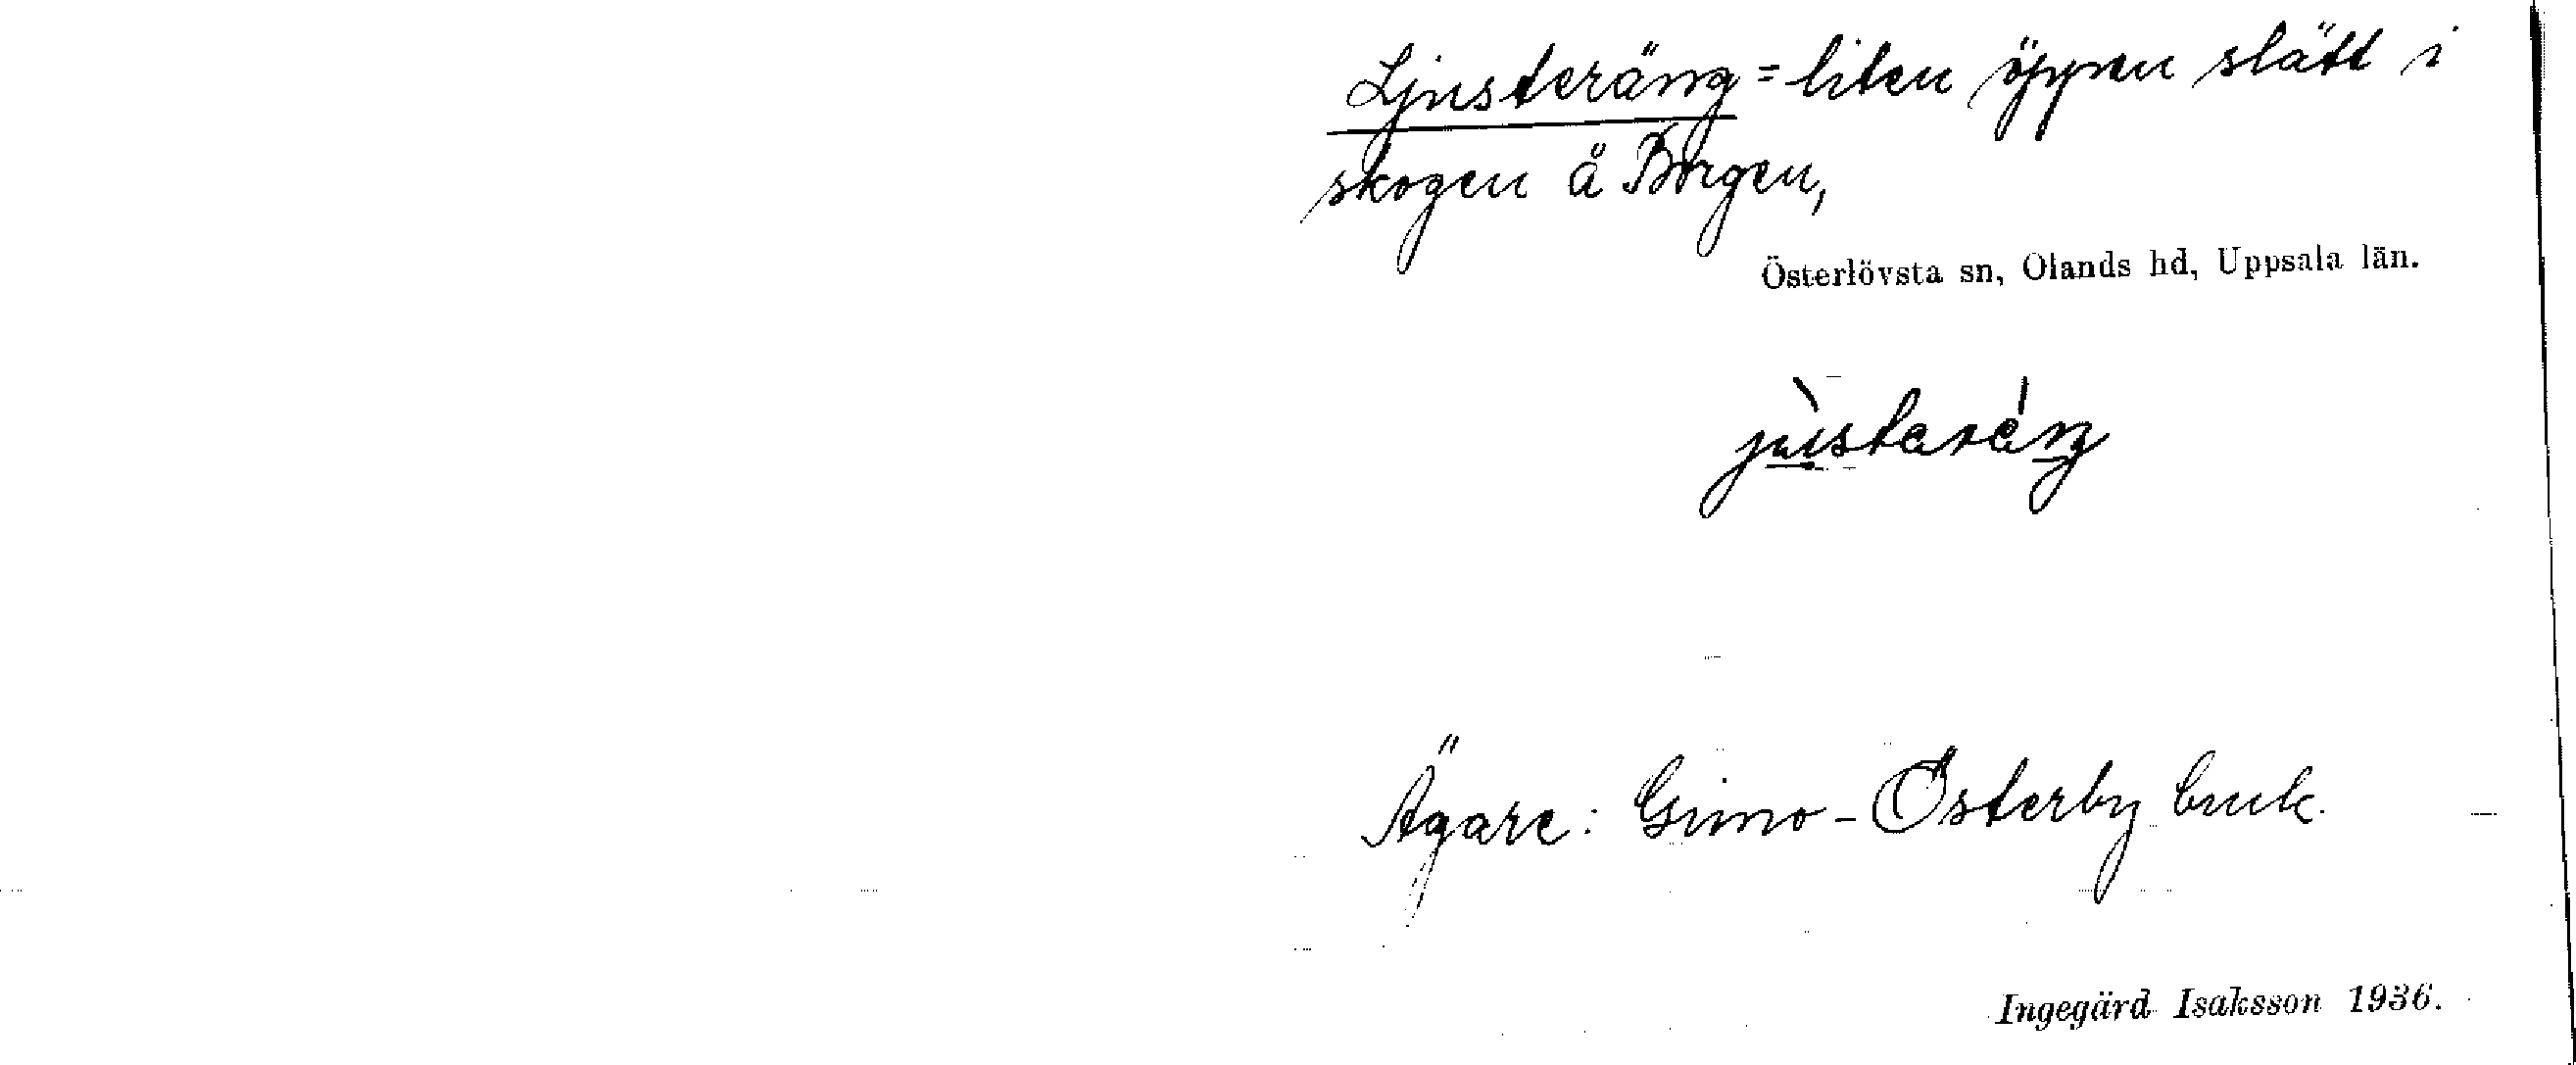 Ljusteräng = liten öppen slätt i
skogen å Borgen,
Österlövsta sn, Olands hd, Uppsala län.
jùstaráŋ
Ägare: Gimo-Österby bruk.
Ingegärd Isaksson 1936.